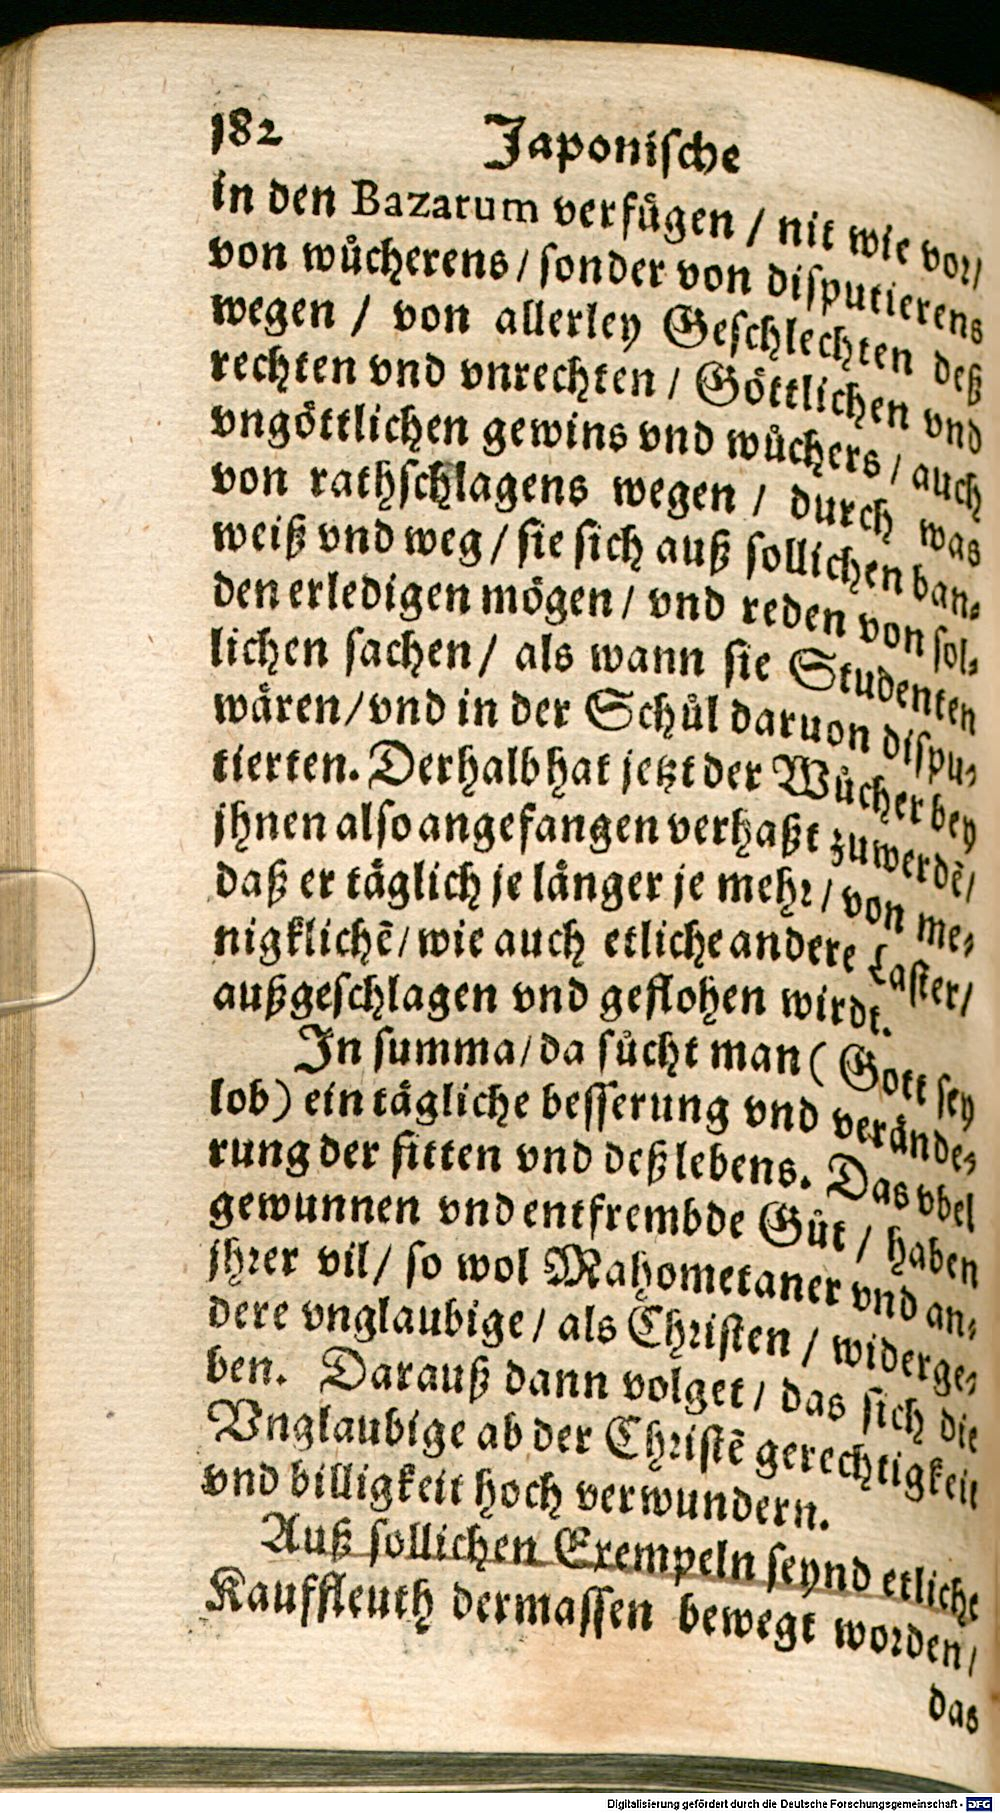 182 Japonische
in den Bazarum verfůgen / nit wie vor/
von wůcherens / sonder von disputierens
wegen / von allerley Geschlechten deß
rechten vnd vnrechten / Göttlichen vnd
vngöttlichen gewins vnd wůchers / auch
von rathschlagens wegen / durch was
weiß vnd weg / sie sich auß sollichen ban-
den erledigen mögen / vnd reden von sol-
lichen sachen / als wann sie Studenten
wären / vnd in der Schůl daruon dispu-
tierten. Derhalb hat jetzt der Wůcher bey
jhnen also angefangen verhaßt zuwerdẽ /
daß er täglich je länger je mehr / von me-
nigklichẽ / wie auch etliche andere Laster /
außgeschlagen vnd geflohen wirdt.
In summa / da sůcht man ( Gott sey
lob ) ein tägliche besserung vnd verände-
rung der sitten vnd deß lebens. Das vbel
gewunnen vnd entfrembde Gůt / haben
jhrer vil / so wol Mahometaner vnd an-
dere vnglaubige / als Christen / widerge-
ben. Darauß dann volget / das sich die
Vnglaubige ab der Christẽ gerechtigkeit
vnd billigkeit hoch verwundern.
Auß sollichen Exempeln seynd etliche
Kauffleuth dermassen bewegt worden /
das
Digitalisierung gefördert durch die Deutsche Forschungsgemeinschaft - DFG